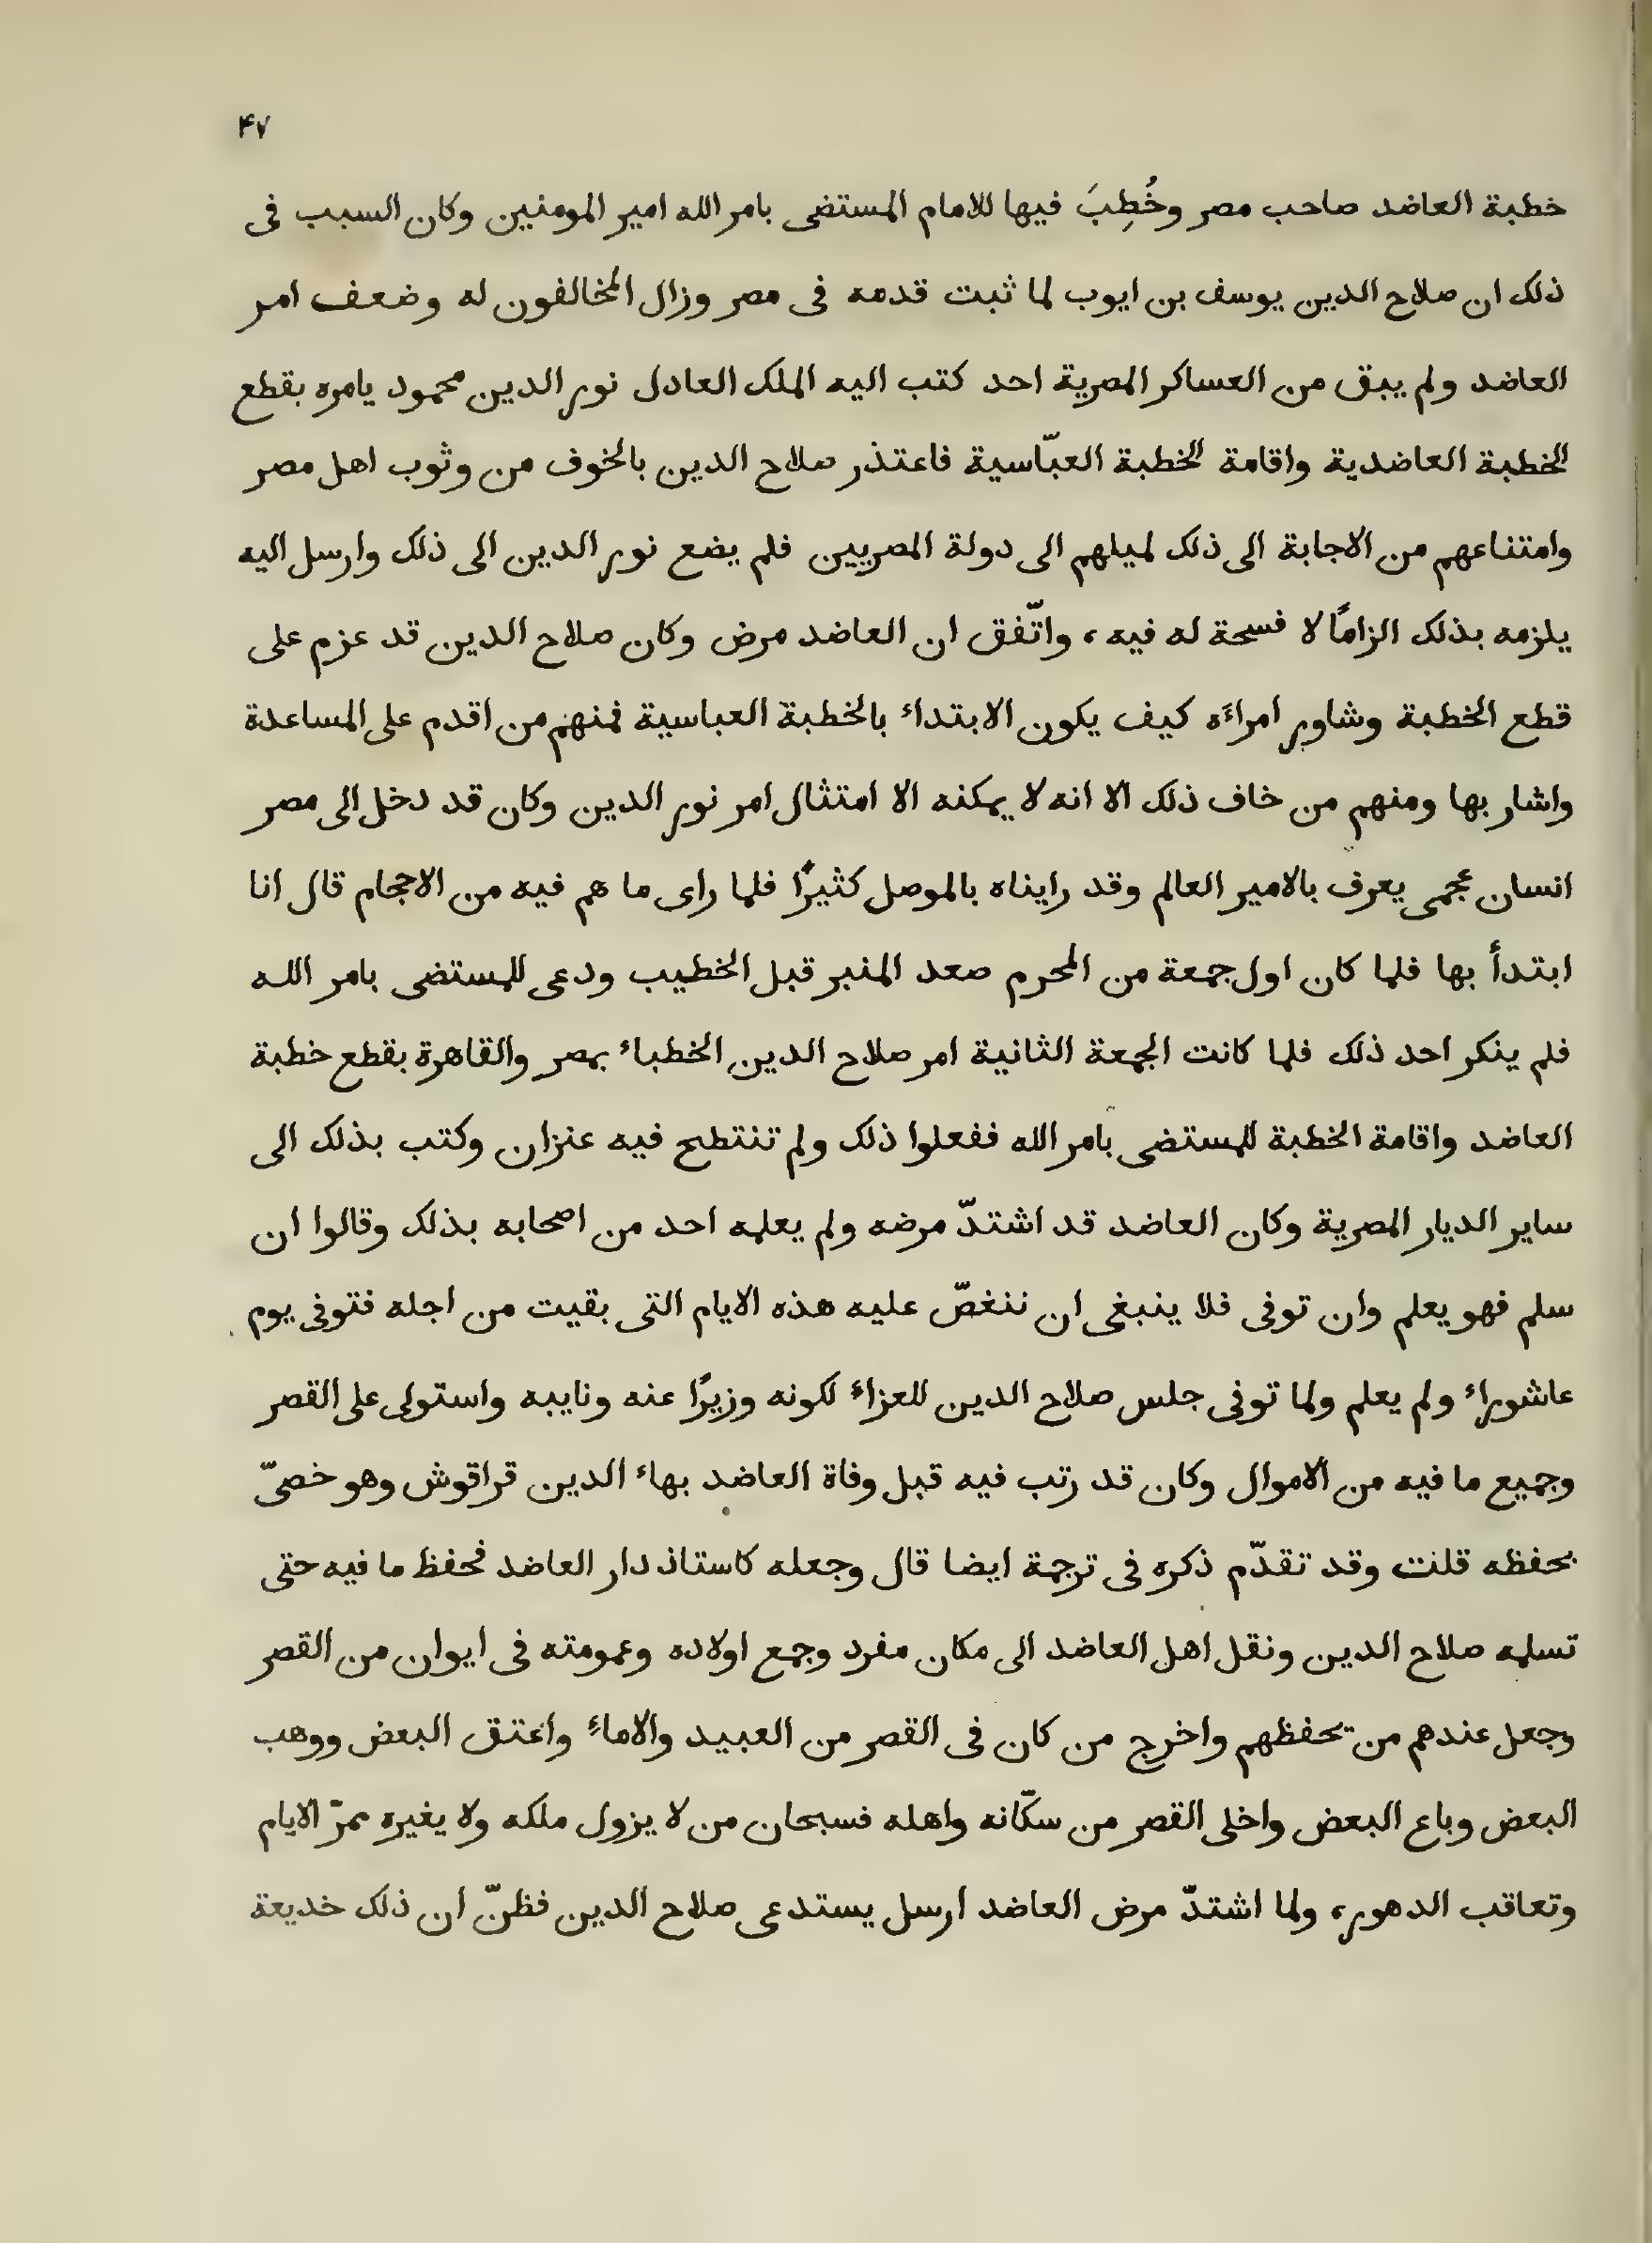 ۴۷
خطبة العاضد صاحب مصر وخُطِبَ فيها للامام المستضى بامر الله امير المومنين وكان السبب فى
ذلك ان صلاح الدين يوسف بن ايوب لما ثبت قدمه فى مصر وزال المخالفون له وضعف امر
العاضد ولم يبق من العساكر المصرية احد كتب اليه الملك العادل نور الدين محمود يامره بقطع
الخطبة العاضدية واقامة الخطبة العبّاسية فاعتذر صلاح الدين بالخوف من وثوب اهل مصر
وامتناعهم من الاجابة الى ذلك لميلهم الى دولة المصريين فلم يضع نور الدين الى ذلك وارسل اليه
يلزمه بذلك الزامًا لا فسحة له فيه، واتّفق ان العاضد مرض وكان صلاح الدين قد عزم على
قطع الخطبة وشاور امراءَه كيف يكون الابتداء بالخطبة العباسية فمنهم من اقدم على المساعدة
واشار بها ومنهم من خاف ذلك الا انه لا يمكنه الا امتثال امر نور الدين وكان قد دخل الى مصر
انسان عجمى يعرف بالامير العالم وقد رايناه بالموصل كثيرًا فلما راى ما هم فيه من الاحجام قال انا
ابتدأ بها فلما كان اول جمعة من المحرم صعد المنبر قبل الخطيب ودعى للمستضى بامر الله
فلم ينكر احد ذلك فلما كانت الجمعة الثانية امر صلاح الدين الخطباء بمصر والقاهرة بقطع خطبة
العاضد واقامة الخطبة للمستضى بامر الله ففعلوا ذلك ولم تنتطح فيه عنزان وكتب بذلك الى
ساير الديار المصرية وكان العاضد قد اشتدّ مرضه ولم يعلمه احد من اصحابه بذلك وقالوا ان
سلم فهو يعلم وان توفى فلا ينبغى ان ننغصّ عليه هذه الايام التى بقيت من اجله فتوفى يوم
عاشوراء ولم يعلم ولما توفى جلس صلاح الدين للعزاء لكونه وزيرًا عنه ونايبه واستولى على القصر
وجميع ما فيه من الاموال وكان قد رتب فيه قبل وفاة العاضد بهاء الدين قراقوش وهو خصىّ
بحفظه قلت وقد تقدّم ذكره فى ترجمة ايضا قال وجعله كاستاذ دار العاضد فحفظ ما فيه حتى
تسلمه صلاح الدين ونقل اهل العاضد الى مكان مفرد وجمع اولاده وعمومته فى ايوان من القصر
وجعل عندهم من يحفظهم واخرج من كان فى القصر من العبيد والاماء واعتق البعض ووهب
البعض وباع البعض واخلى القصر من سكّانه واهله فسبحان من لا يزول ملكه ولا يغيره ممرّ الايام
وتعاقب الدهور، ولما اشتدّ مرض العاضد ارسل يستدعى صلاح الدين فظنّ ان ذلك خديعة